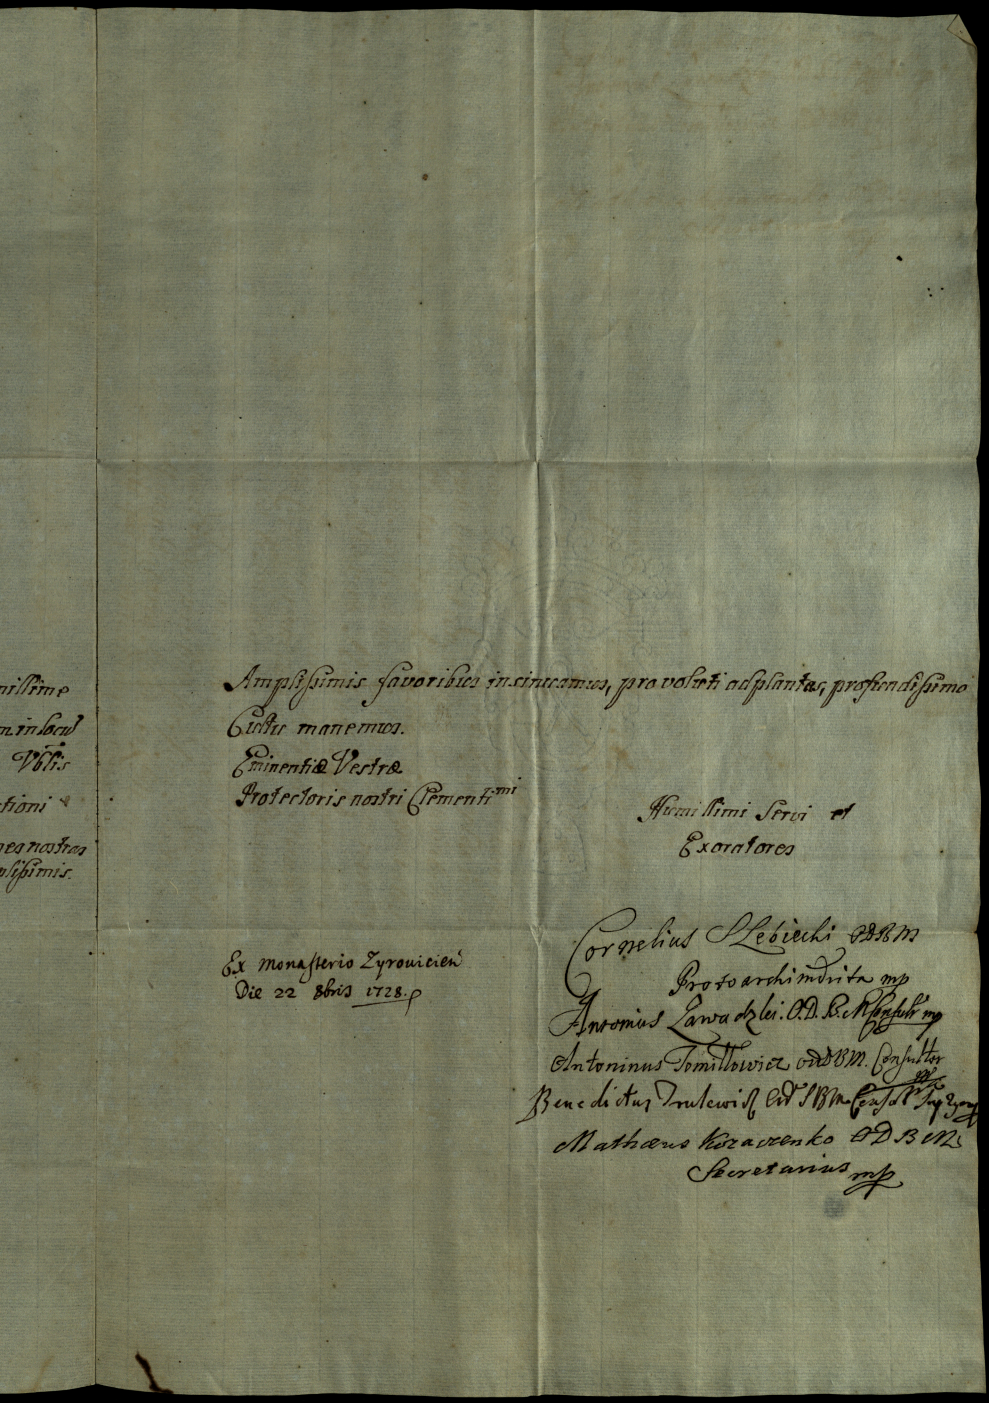 nissime
m in locu
Vblis
ctioni
nes nostras
plissimis.
Amplissimis favoribus insinuamus, provoluti ad plantas, profundissimo
Cultu manemus.
Eminentiæ Vestræ
Protectoris nostri Clementimi
Humillimi Servi et
Exoratores
Ex Monasterio Zyrovicien
Die 22 8bris 1728.
Cornelius SLebiecki ODBM
Protoarchimdrita mp
Antonius Zawadzki. O.D.B.M Consult mp
Antoninus Tomillowicz ODBM. Consultor
mp
Benedictus Trulewicz SBM Consult
Mathæus Kozaczenko ODBM
Secretarius mp